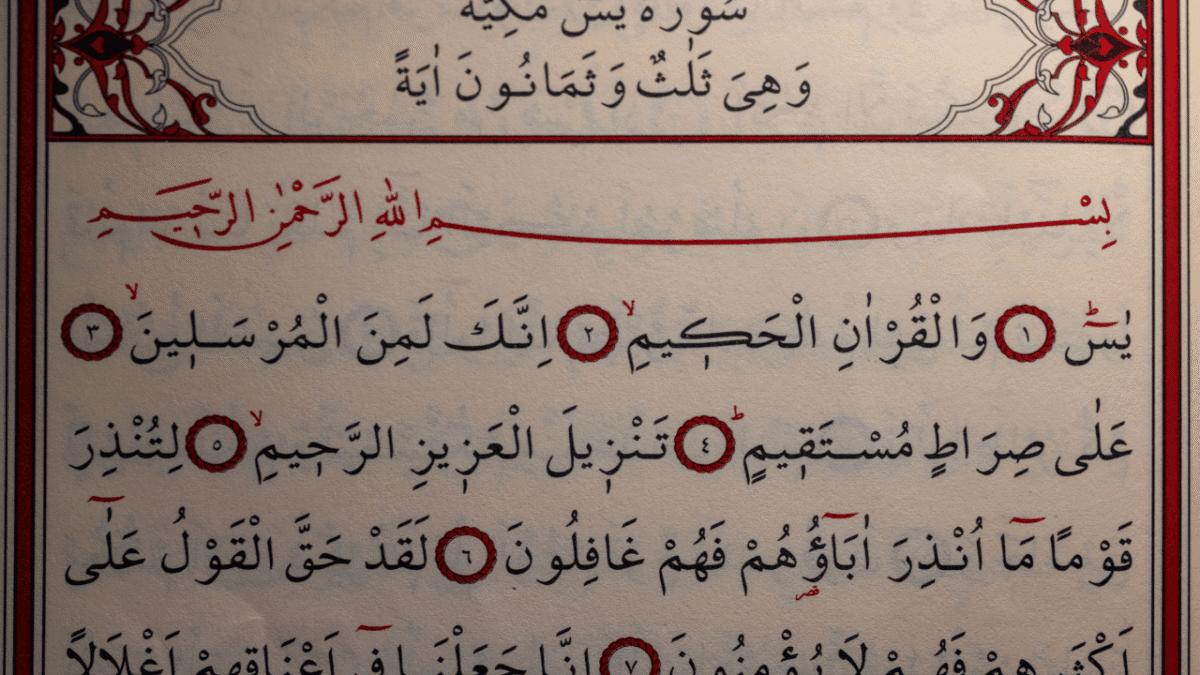 سُورَةُ يٰسٓ مَكِّيَّةٌ
وَهِىَ ثَلٰثٌ وَ ثَمَانُونَ اٰيَةً
بِسْمِ اللّٰهِ الرَّحْمٰنِ الرَّحِيمِ
يٰسٓ ۚ ﴿١﴾ وَالْقُرْاٰنِ الْحَكِيمِ ۙ ﴿٢﴾ اِنَّكَ لَمِنَ الْمُرْسَلِينَ ۙ ﴿٣﴾
عَلٰى صِرَاطٍ مُسْتَقِيمٍ ۜ ﴿٤﴾ تَنْزِيلَ الْعَزِيزِ الرَّحِيمِ ۙ ﴿٥﴾ لِتُنْذِرَ
قَوْمًا مَٓا اُنْذِرَ اٰبَٓاؤُ۬هُمْ فَهُمْ غَافِلُونَ ﴿٦﴾ لَقَدْ حَقَّ الْقَوْلُ عَلٰٓى
اَكْثَرِهِمْ فَهُمْ لَا يُؤْمِنُونَ ﴿٧﴾ اِنَّا جَعَلْنَا فِٓى اَعْنَاقِهِمْ اَغْلَالًا